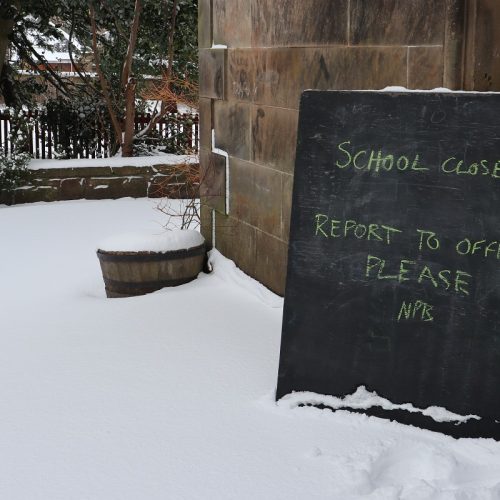 SCHOOL CLOSE
REPORT TO OFF
PLEASE
NPB